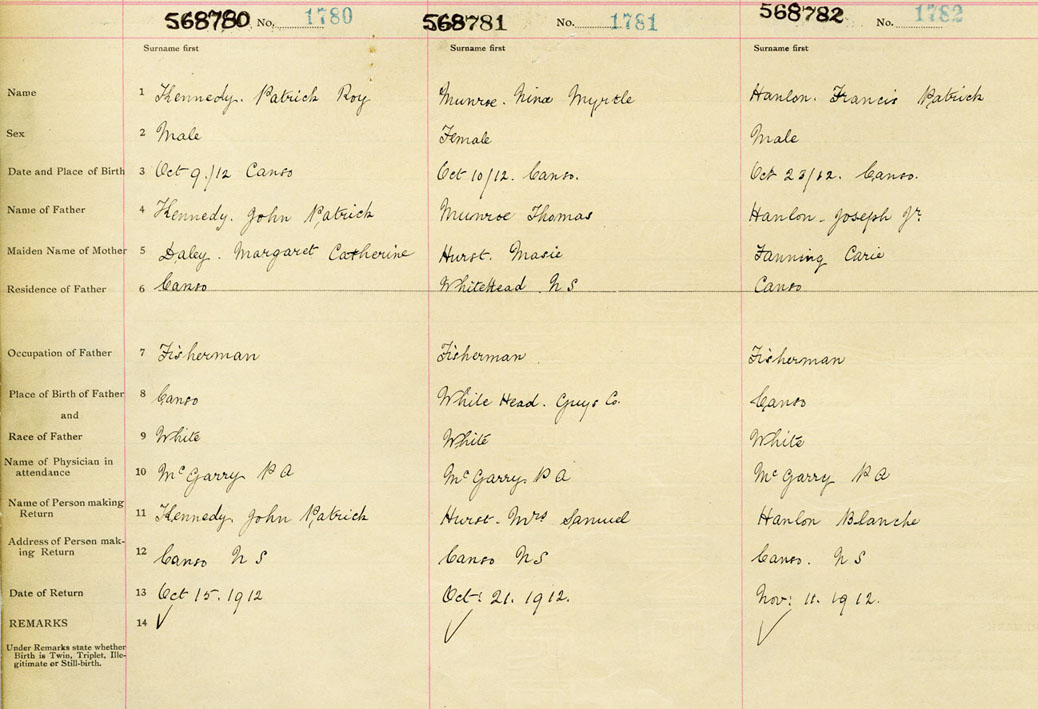 568780 No. 1780 568781 No. 1781 568782 No. 1782
Surname first Surname first Surname first
Name 1 Kennedy. Patrick Roy Munroe. Nina Myrtle Hanlon. Francis Patrick
Sex 2 Male Female Male
Date and Place of Birth 3 Oct 9./12 Canso Oct 10/12. Canso. Oct 23/12. Canso.
Name of Father 4 Kennedy. John Patrick Munroe Thomas Hanlon. Joseph Jr.
Maiden Name of Mother 5 Daley. Margaret Catherine Hurst. Masie Fanning Carie
Residence of Father 6 Canso WhiteHead N S Canso
Occupation of Father 7 Fisherman Fisherman Fisherman
Place of Birth of Father 8 Canso White Head. Guys Co. Canso
and
Race of Father 9 White White White
Name of Physician in
attendance 10 McGarry P A McGarry P A McGarry P A
Name of Person making
Return 11 Kennedy, John Patrick Hurst. Mrs Samuel Hanlon Blanche
Address of Person mak-
ing Return 12 Canso N S Canso N S Canso. N S
Date of Return 13 Oct 15. 1912 Oct: 21. 1912. Nov: 11. 1912.
REMARKS 14 ✓ ✓ ✓
Under Remarks state whether
Birth is Twin, Triplet, Ille-
gitimate or Still-birth.